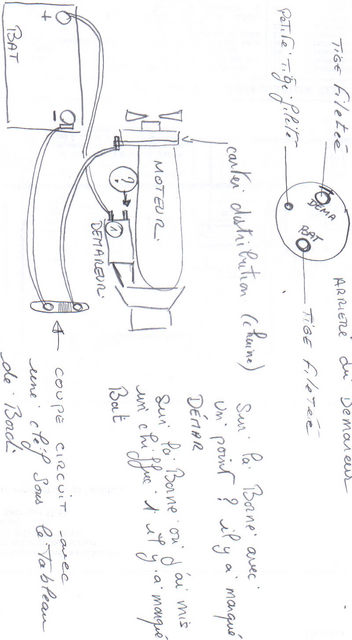 ARRIERE du Demareur
TIGE filetée
petite Tige filetée
DEMA
BAT
TIGE FILETEE
carter distribution (chaine)
Sur la Borne avec
un point ? il y a marqué
DÉMAR
Sur la Borne ou j'ai mis
un chiffre 1 il y a marqué
Bat
MOTEUR
?
1
DEMAREUR
+
-
BAT
COUPE CIRCUIT avec
une clef sous le Tableau
de Bord